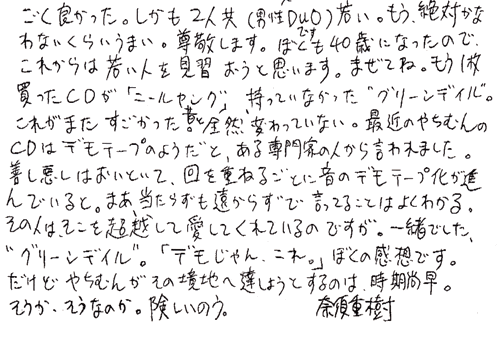 ごく良かった。しかも2人共(男性DuO)若い。もう、絶対かな
わないくらいうまい。尊敬します。ぼくもです40歳になったので、
これからは若い人を見習おうと思います。まぜてね。もう1枚
買ったCDが「ニールヤング」持っていなかった"グリーンデイル"。
これがまたすごかった。昔と全然変わっていない。最近のやちむんの
CDはデモテープのようだと、ある専門家の人から言われました。
善し悪しはおいといて、回を重ねるごとに音のデモテープ化が進
んでいると。まあ、当たらずも遠からずで言ってることはよくわかる。
その人は、そこを超越して愛してくれているのですが。一緒でした、
"グリーンデイル"。「デモじゃん、これ。」ぼくの感想です。
だけどやちむんがその境地へ達しようとするのは、時期尚早。
そうか、そうなのか。険しいのう。 奈須重樹